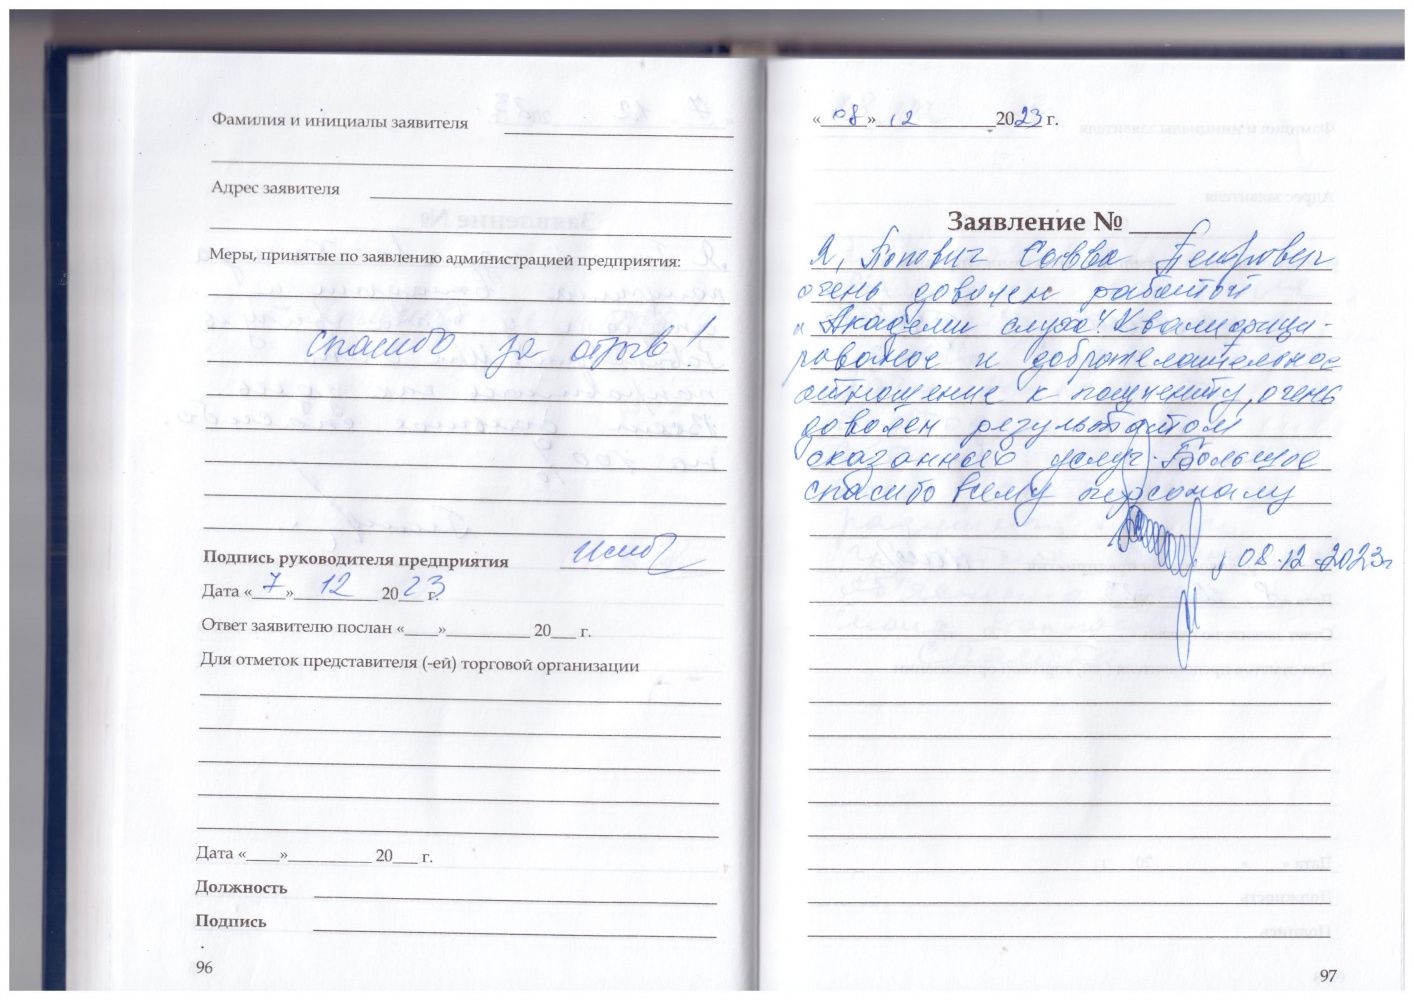 Фамилия и инициалы заявителя
Адрес заявителя
Меры, принятые по заявлению администрацией предприятия:
спасибо за отзыв!
Подпись руководителя предприятия
Дата «7» 12 2023 г.
Ответ заявителю послан «____»__________ 20___ г.
Для отметок представителя (-ей) торговой организации
Дата «____»__________ 20___ г.
Должность
Подпись
96
«08» 12 2023 г.
Заявление № _____
Я, Попович Савва Петрович
очень доволен работой
"Академи слуха". Квалифици-
рованое и доброжелательное
отношение к пациенту, очень
доволен результатом
оказанных услуг. Большое
спасибо всему персоналу
08.12.2023г
97